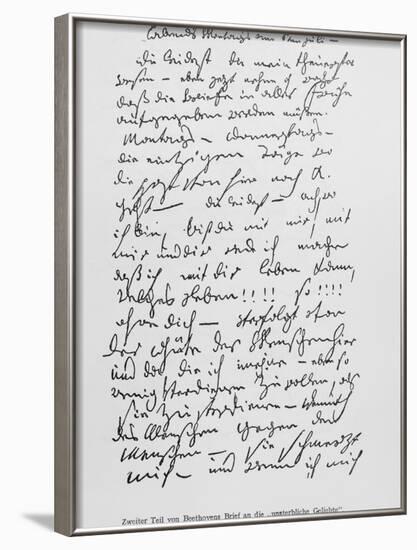 Abends Montags am 6ten Juli —
Du leidest du mein theuerstes
Wesen — eben jetzt nehme ich wahr
daß die Briefe in aller Frühe
aufgegeben werden müßen.
Montags — Donnerstags —
die eintzigen Täge wo
die Post von hier nach K.
geht — du leidest — ach, wo
ich bin, bist du mit mir, mit
mir und dir rede ich mache
daß ich mit dir leben kann,
welches Leben!!!! so!!!!
ohne dich — verfolgt von
der Güte der Menschen hier
und da, die ich meyne — eben so
wenig verdienen zu wollen, als
sie zu verdienen — Demuth
des Menschen gegen den
Menschen — sie schmerzt
mich — und wenn ich mich
Zweiter Teil von Beethovens Brief an die „unsterbliche Geliebte"